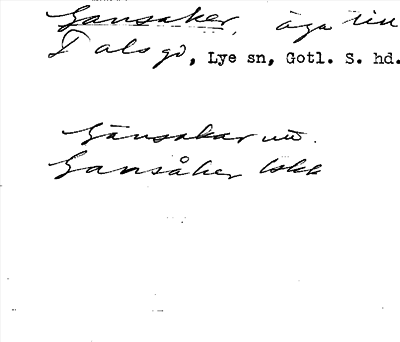 Gansaker, äga till
Tals gd, Lye sn, Gotl. S. hd.
Gänsakar utt.
Gansåker lskk